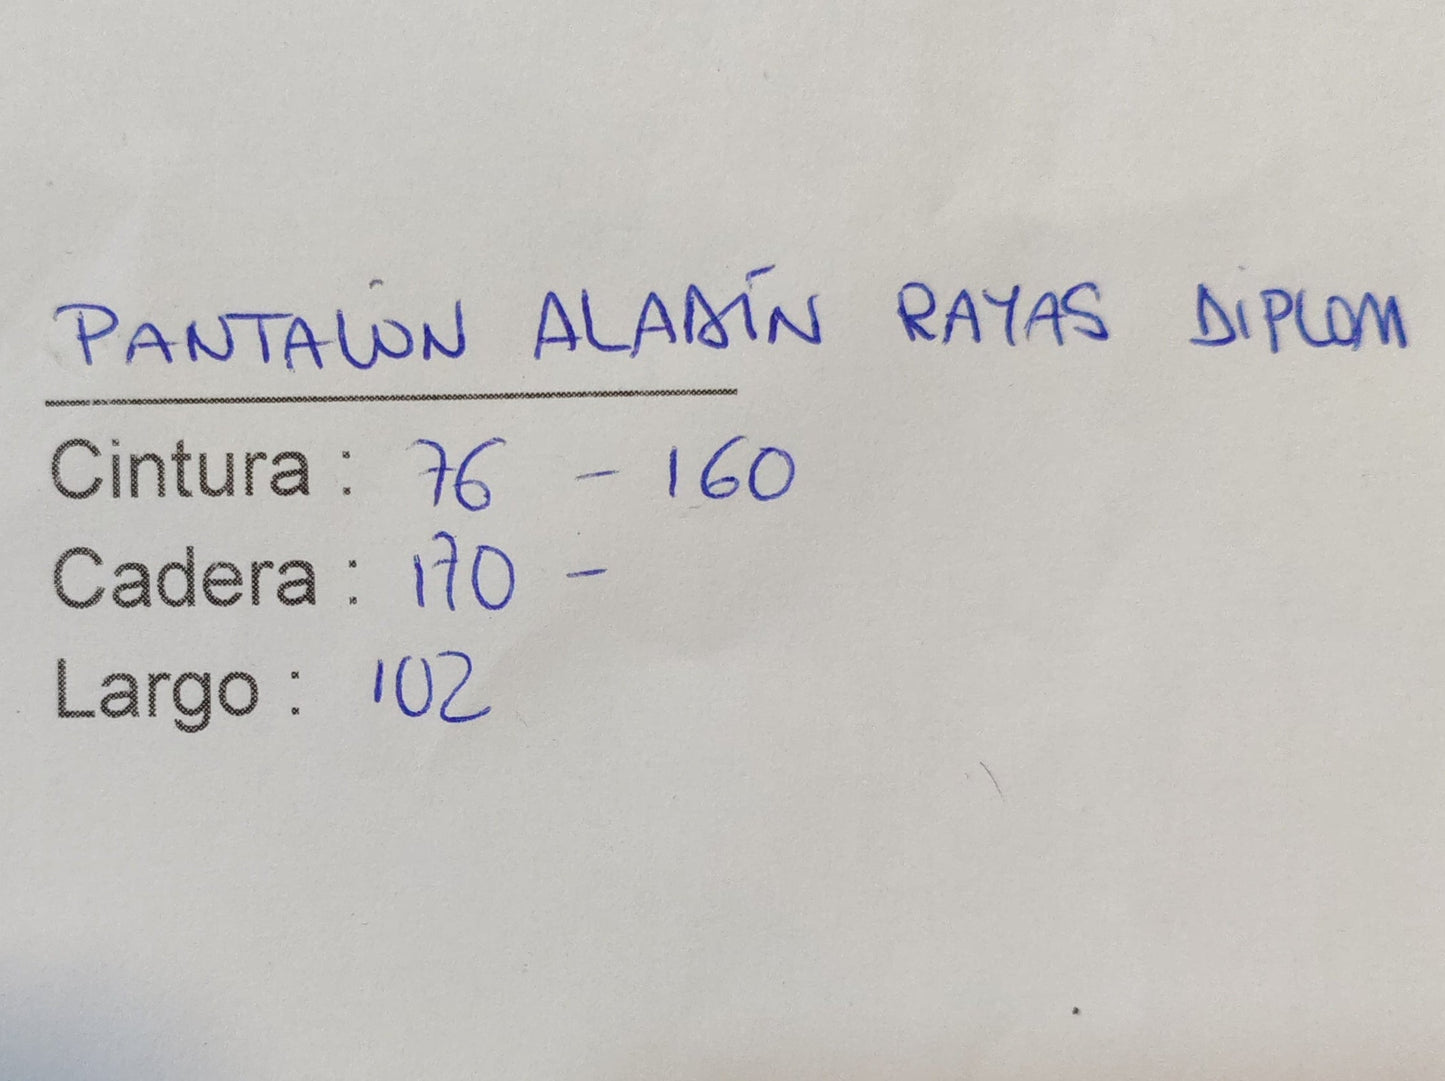 PANTALÓN ALADÍN RAYAS DIPLOM
Cintura : 76 - 160
Cadera : 170 -
Largo : 102